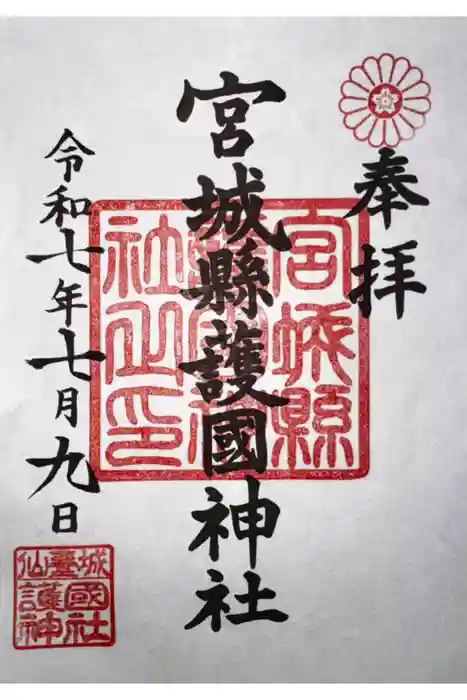 奉拝
宮城縣護國神社
令和七年七月九日
宮城縣
護國神
社之印
仙臺城
護國神社